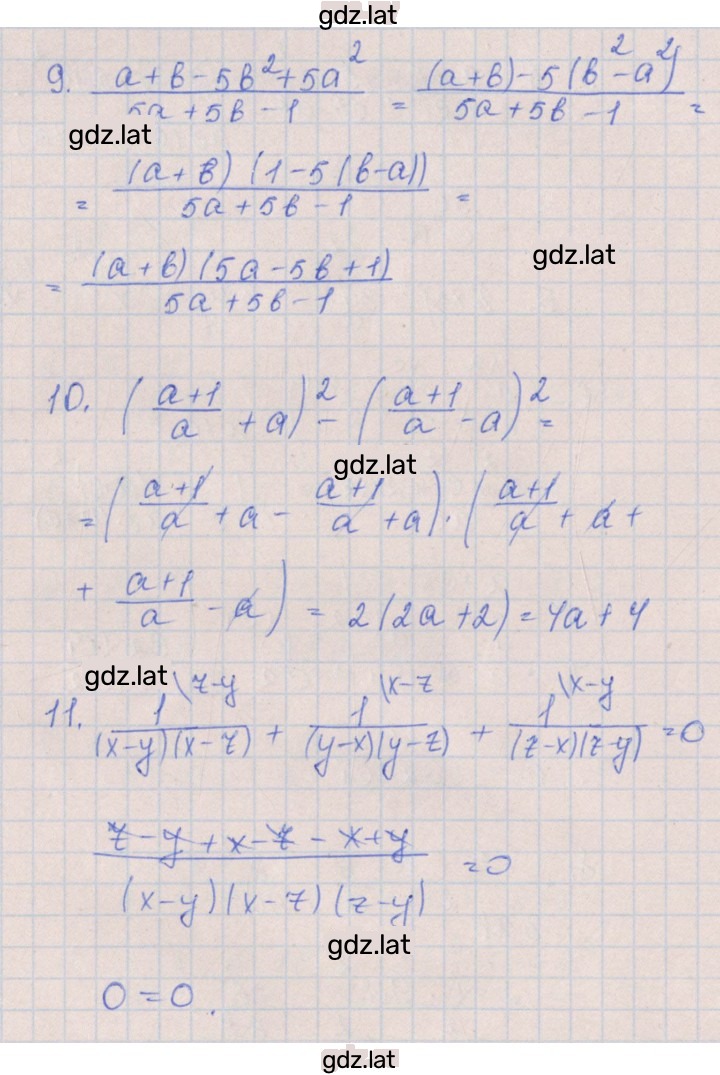 gdz.lat
9. (a+b-5b²+5a²)/(5a+5b-1) = ((a+b)-5(b²-a²))/(5a+5b-1) =
gdz.lat
= ((a+b)(1-5(b-a)))/(5a+5b-1) =
gdz.lat
= ((a+b)(5a-5b+1))/(5a+5b-1)
10. ((a+1)/a + a)² - ((a+1)/a - a)² =
gdz.lat
= ((a+1)/a + a - (a+1)/a + a) · ((a+1)/a + a +
+ (a+1)/a - a) = 2(2a+2) = 4a+4
gdz.lat
11. 1\z-y/((x-y)(x-z)) + 1\x-z/((y-x)(y-z)) + 1\x-y/((z-x)(z-y)) = 0
(z-y+x-z-x+y)/((x-y)(x-z)(z-y)) = 0
gdz.lat
0 = 0.
gdz.lat